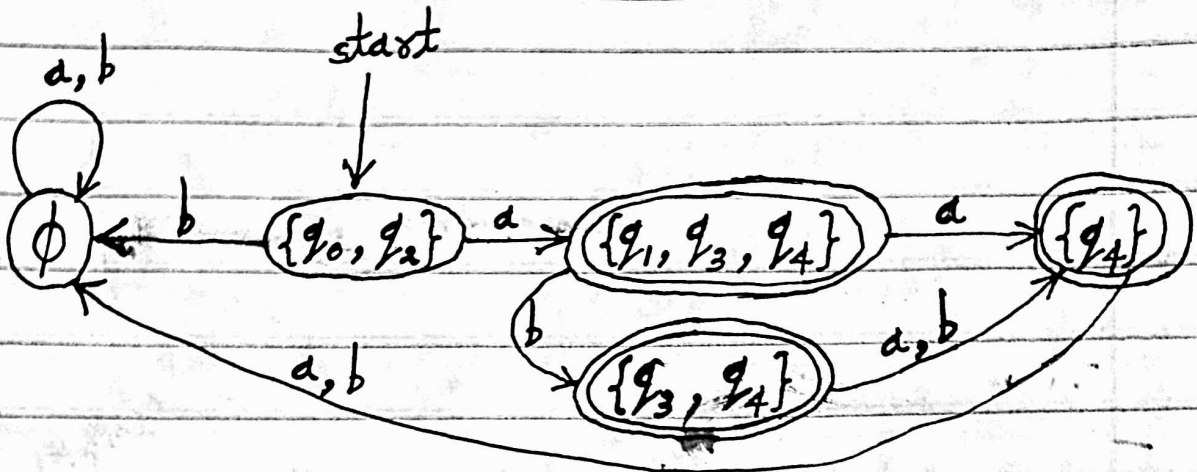 start
a, b
ϕ
b
{q₀, q₂}
a
{q₁, q₃, q₄}
a
{q₄}
b
{q₃, q₄}
a, b
a, b